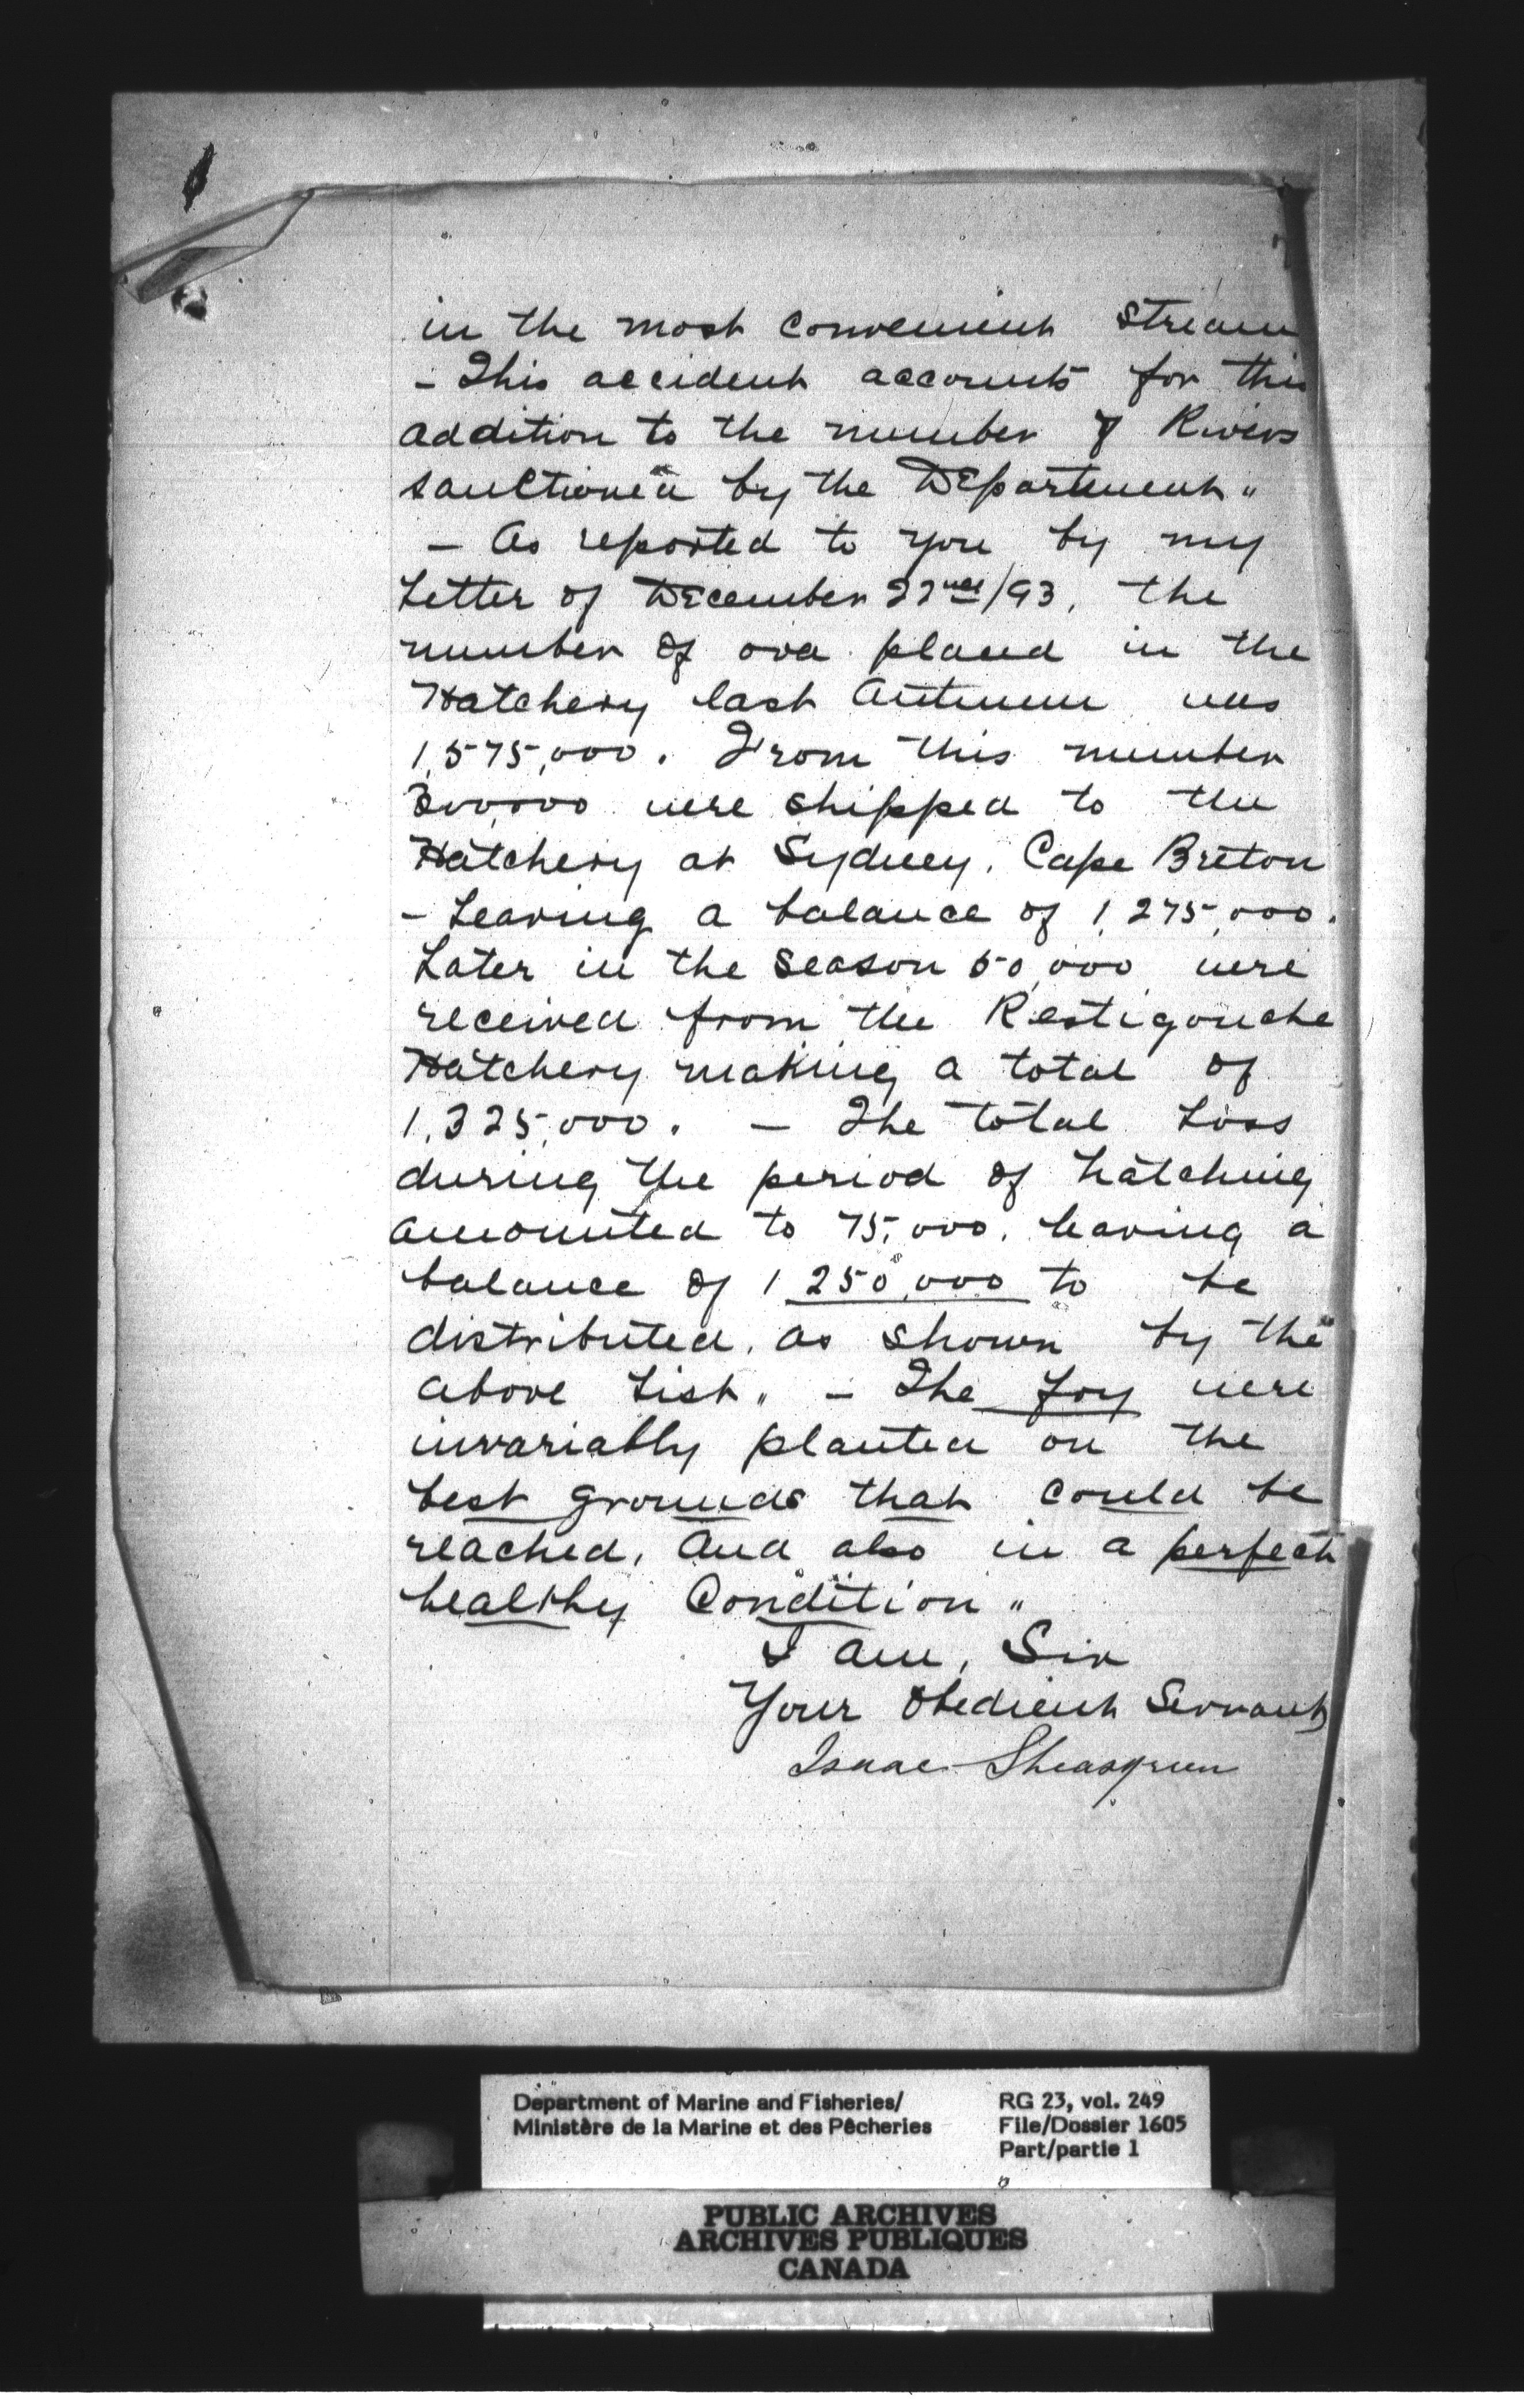 in the most convenient Stream
- This accident accounts for this
addition to the number of Rivers
sanctioned by the Department "
- As reported to you by my
Letter of December 22nd/93, the
number of ova placed in the
Hatchery last Autumn was
1,575,000. From this number
300,000 were shipped to the
Hatchery at Sydney, Cape Breton
- Leaving a balance of 1,275,000.
Later in the Season 50,000 were
received from the Restigouche
Hatchery making a total of
1,325,000. - The total Loss
during the period of hatching
amounted to 75,000, leaving a
balance of 1250,000 to be
distributed, as shown by the
above List " - The fry were
invariably planted on the
best grounds that could be
reached, and also in a perfect
healthy Condition "
I am, Sir
Your Obedient Servant
Isaac Sheasgreen
Department of Marine and Fisheries/
Ministère de la Marine et des Pêcheries
RG 23, vol. 249
File/Dossier 1605
Part/partie 1
PUBLIC ARCHIVES
ARCHIVES PUBLIQUES
CANADA